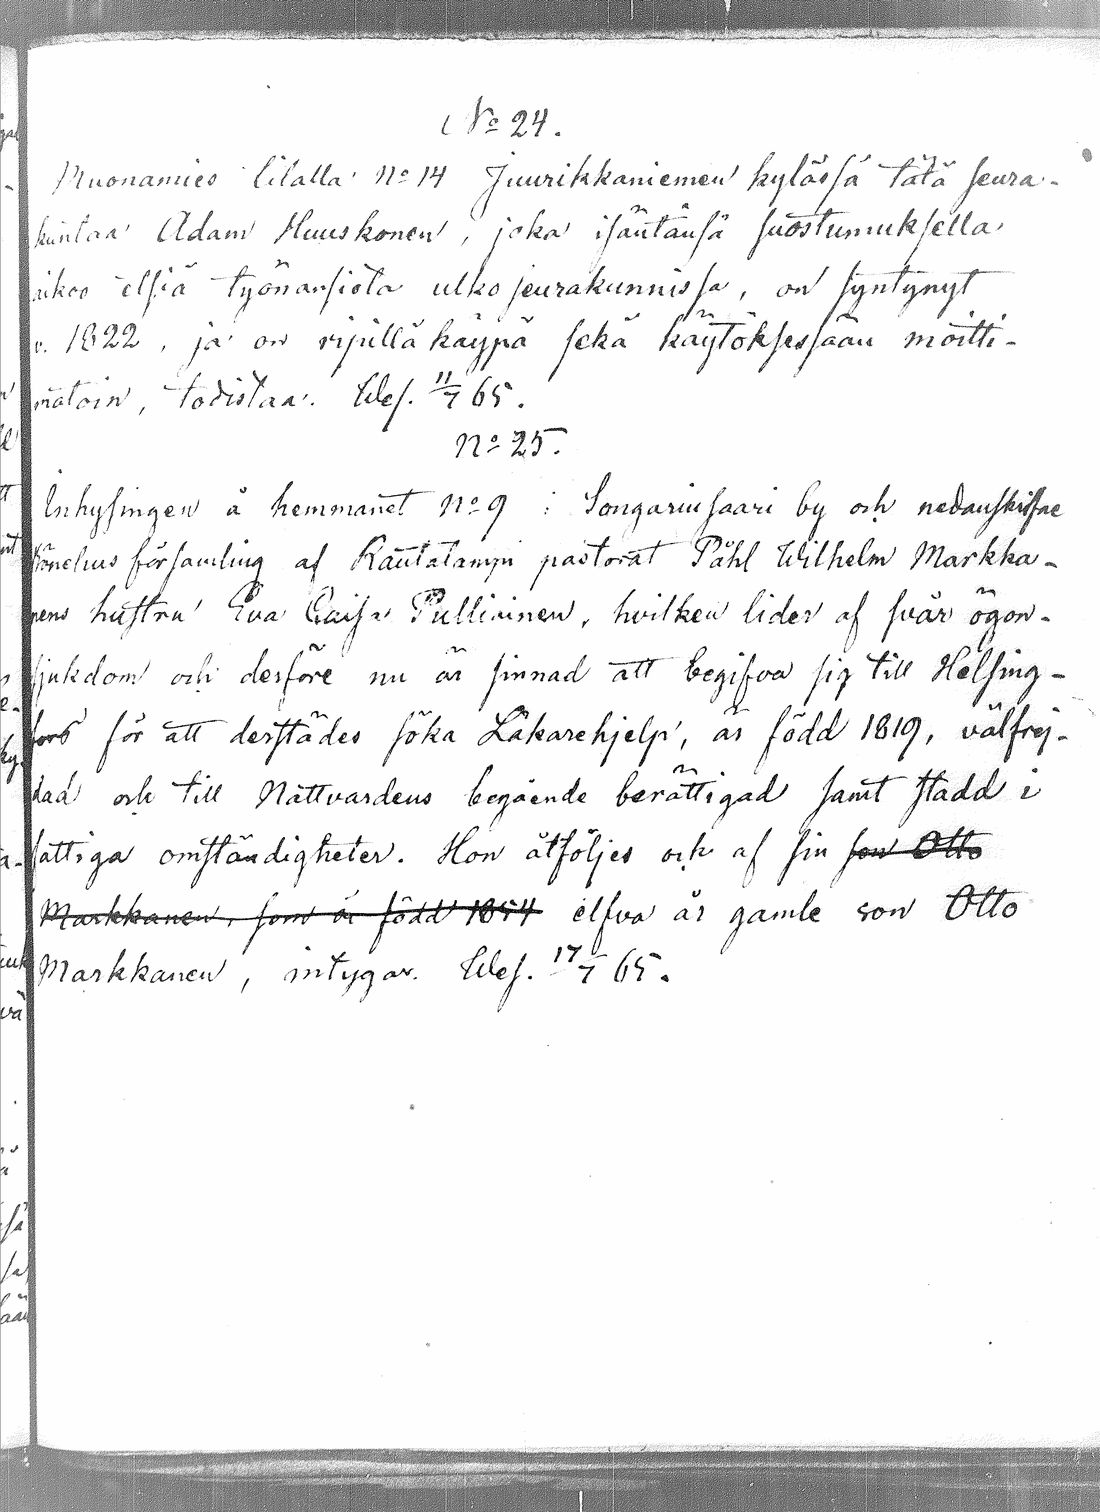 No 24.
Muonamies tilalla No 14 Juurikkaniemen kylässä tätä seura-
kuntaa Adam Huuskonen, joka isäntänsä suostumuksella
aikoo etsiä työnansiota ulko seurakunnissa, on syntynyt
v. 1822, ja on ripillä käypä sekä käytöksessään moitti-
matoin, todistaa. Wes. 11/7 65.
No 25.
Inhysingen å hemmanet No 9 i Songarinsaari by och
församling af Rautalampi pastorat Påhl Wilhelm Markka-
nens hustru Eva Caisa Pulliainen, hvilken lider af svår ögon-
sjukdom och derföre nu är sinnad att begifva sig till Helsing-
fors för att derstädes söka Läkarehjelp, är född 1819, välfrej-
dad och till Nattvardens begående berättigad samt stadd i
fattiga omständigheter. Hon åtföljes och af sin son Otto
Markkanen, som är född 1854 elfva år gamle son Otto
Markkanen, intygar. Wes. 17/7 65.